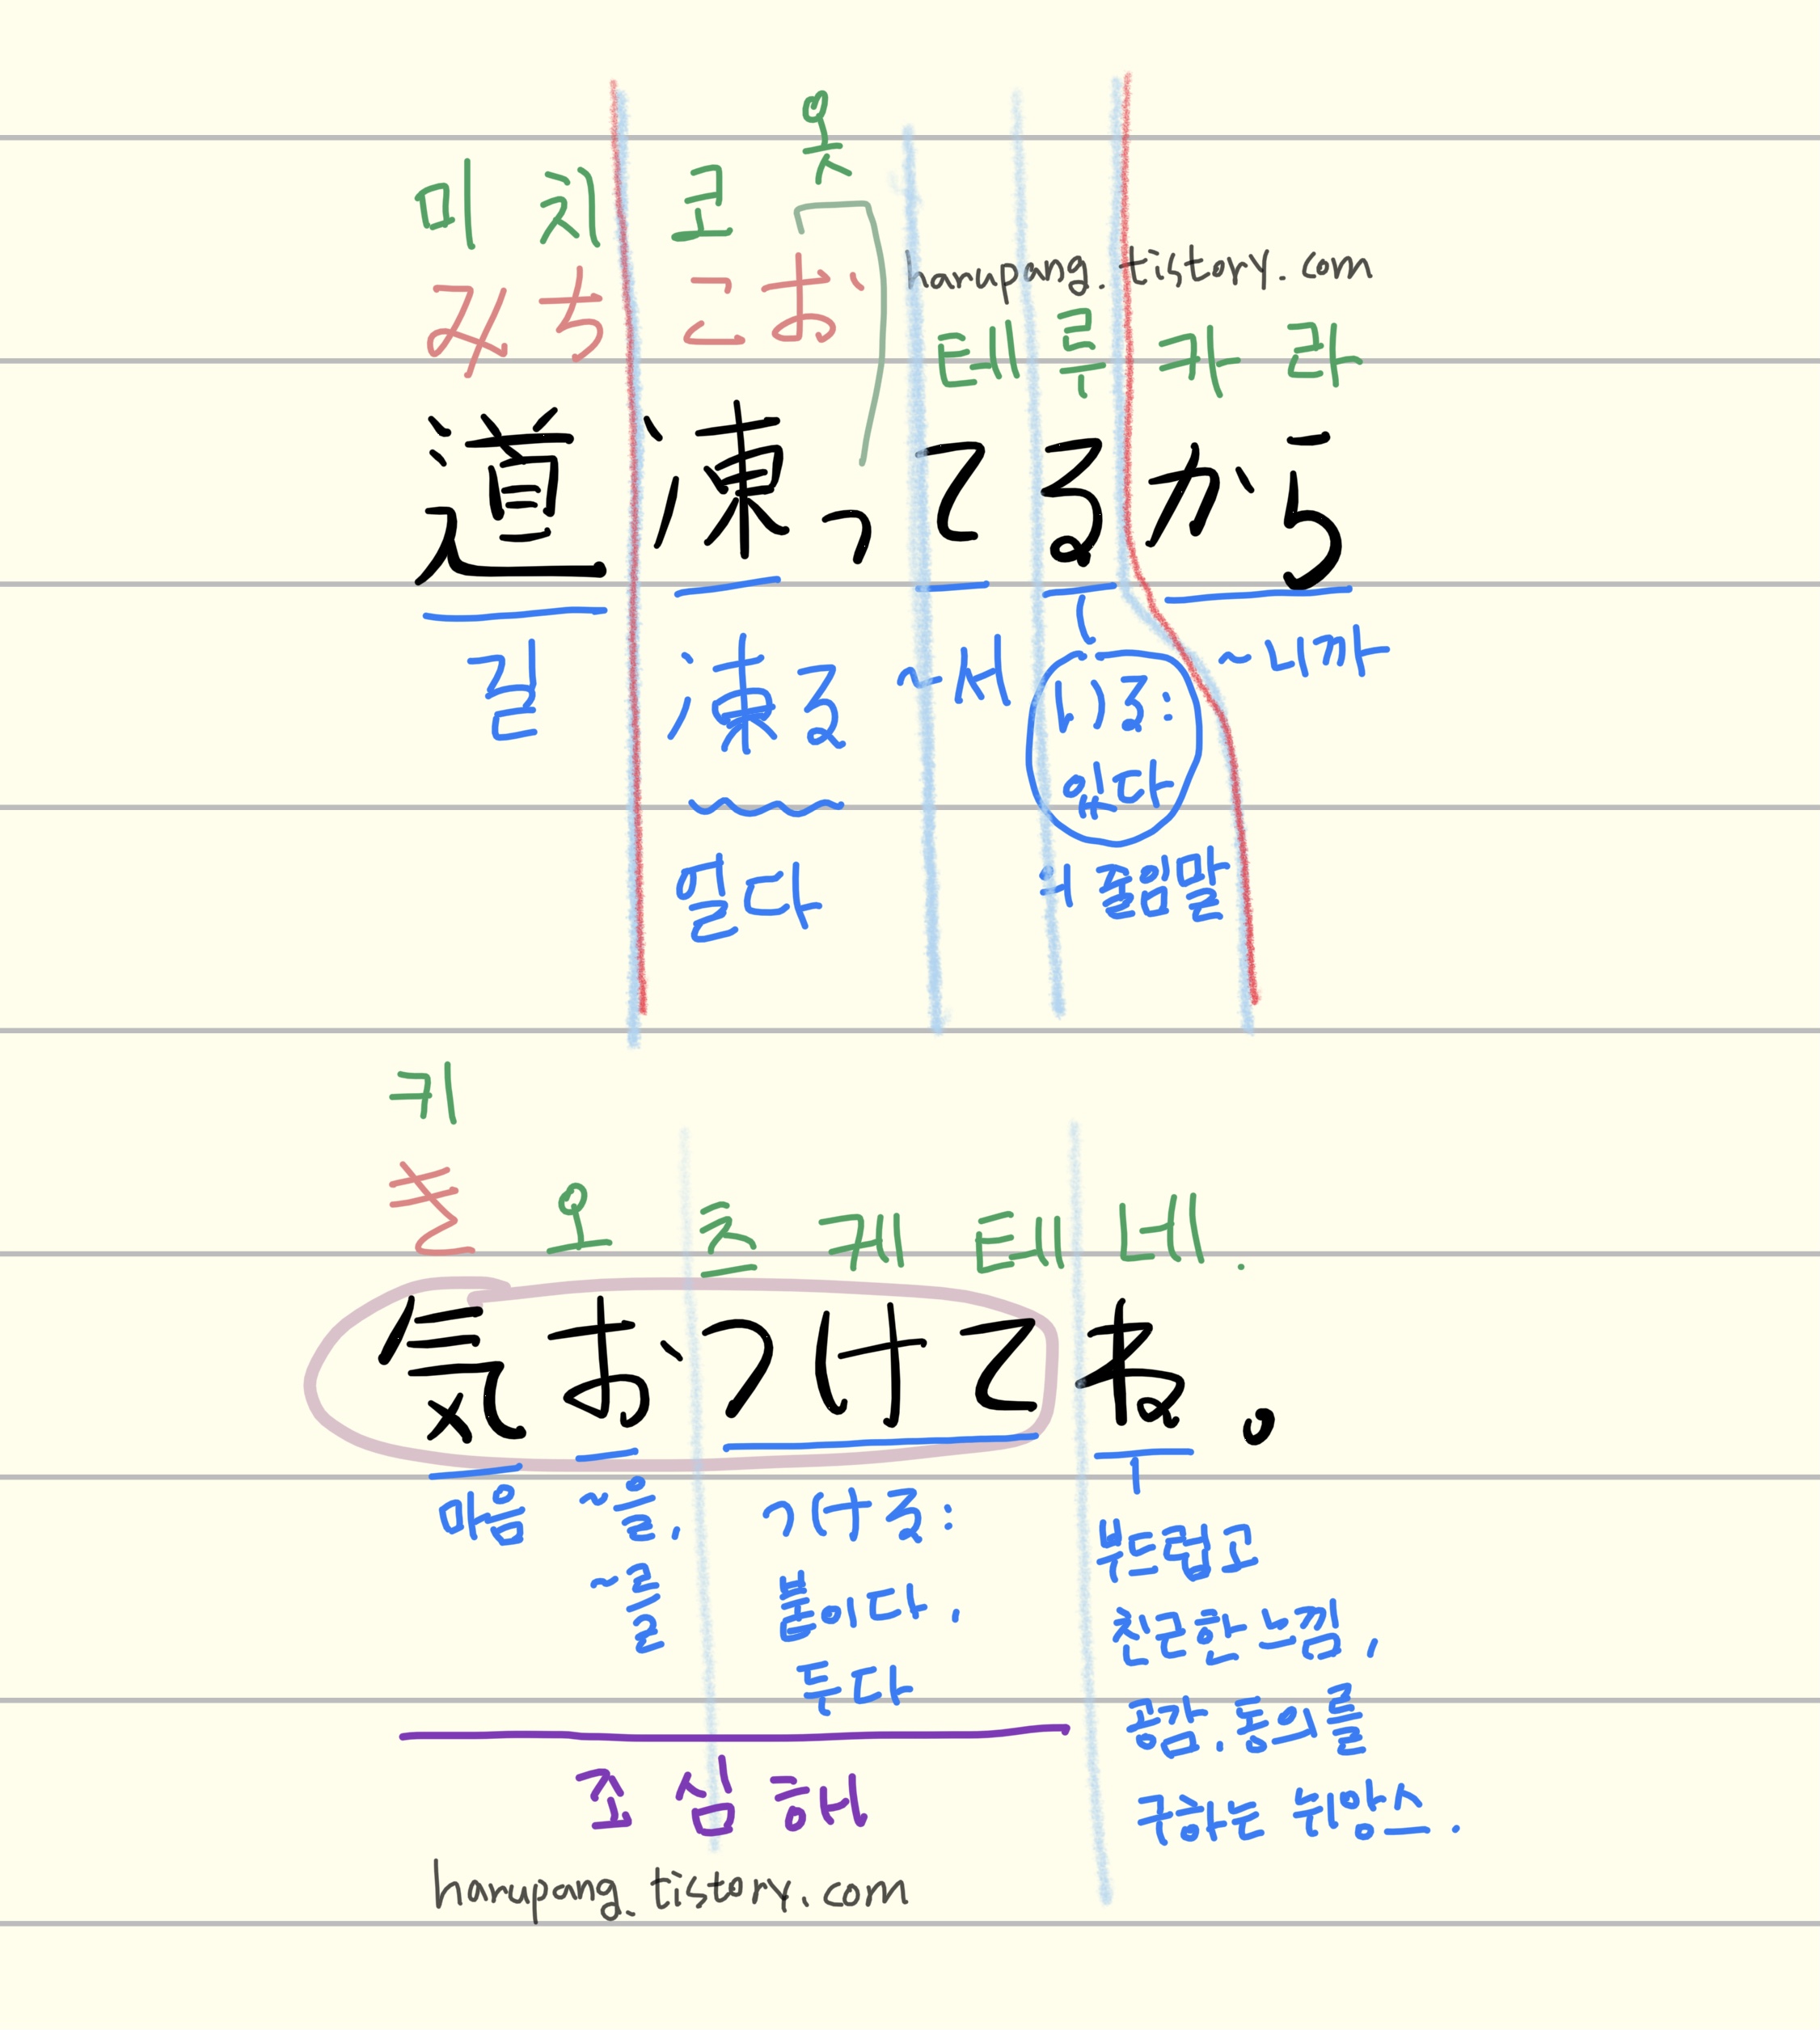 옷
미치코
みちこお
harupang.tistory.com
테루카라
道凍ってるから
길 凍る ~서 いる: ~니까
있다
얼다 의 줄임말
키
き 오 츠 케 테 네.
気おつけてね。
마음 ~을, つける: 부드럽고
~를 붙이다, 친근한 느낌,
두다 공감.동의를
조심해 구하는 뉘앙스.
harupang.tistory.com